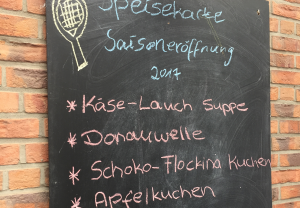 Speisekarte
Saisoneröffnung
2017
* Käse-Lauch Suppe
* Donauwelle
* Schoko-Flockina Kuchen
* Apfelkuchen